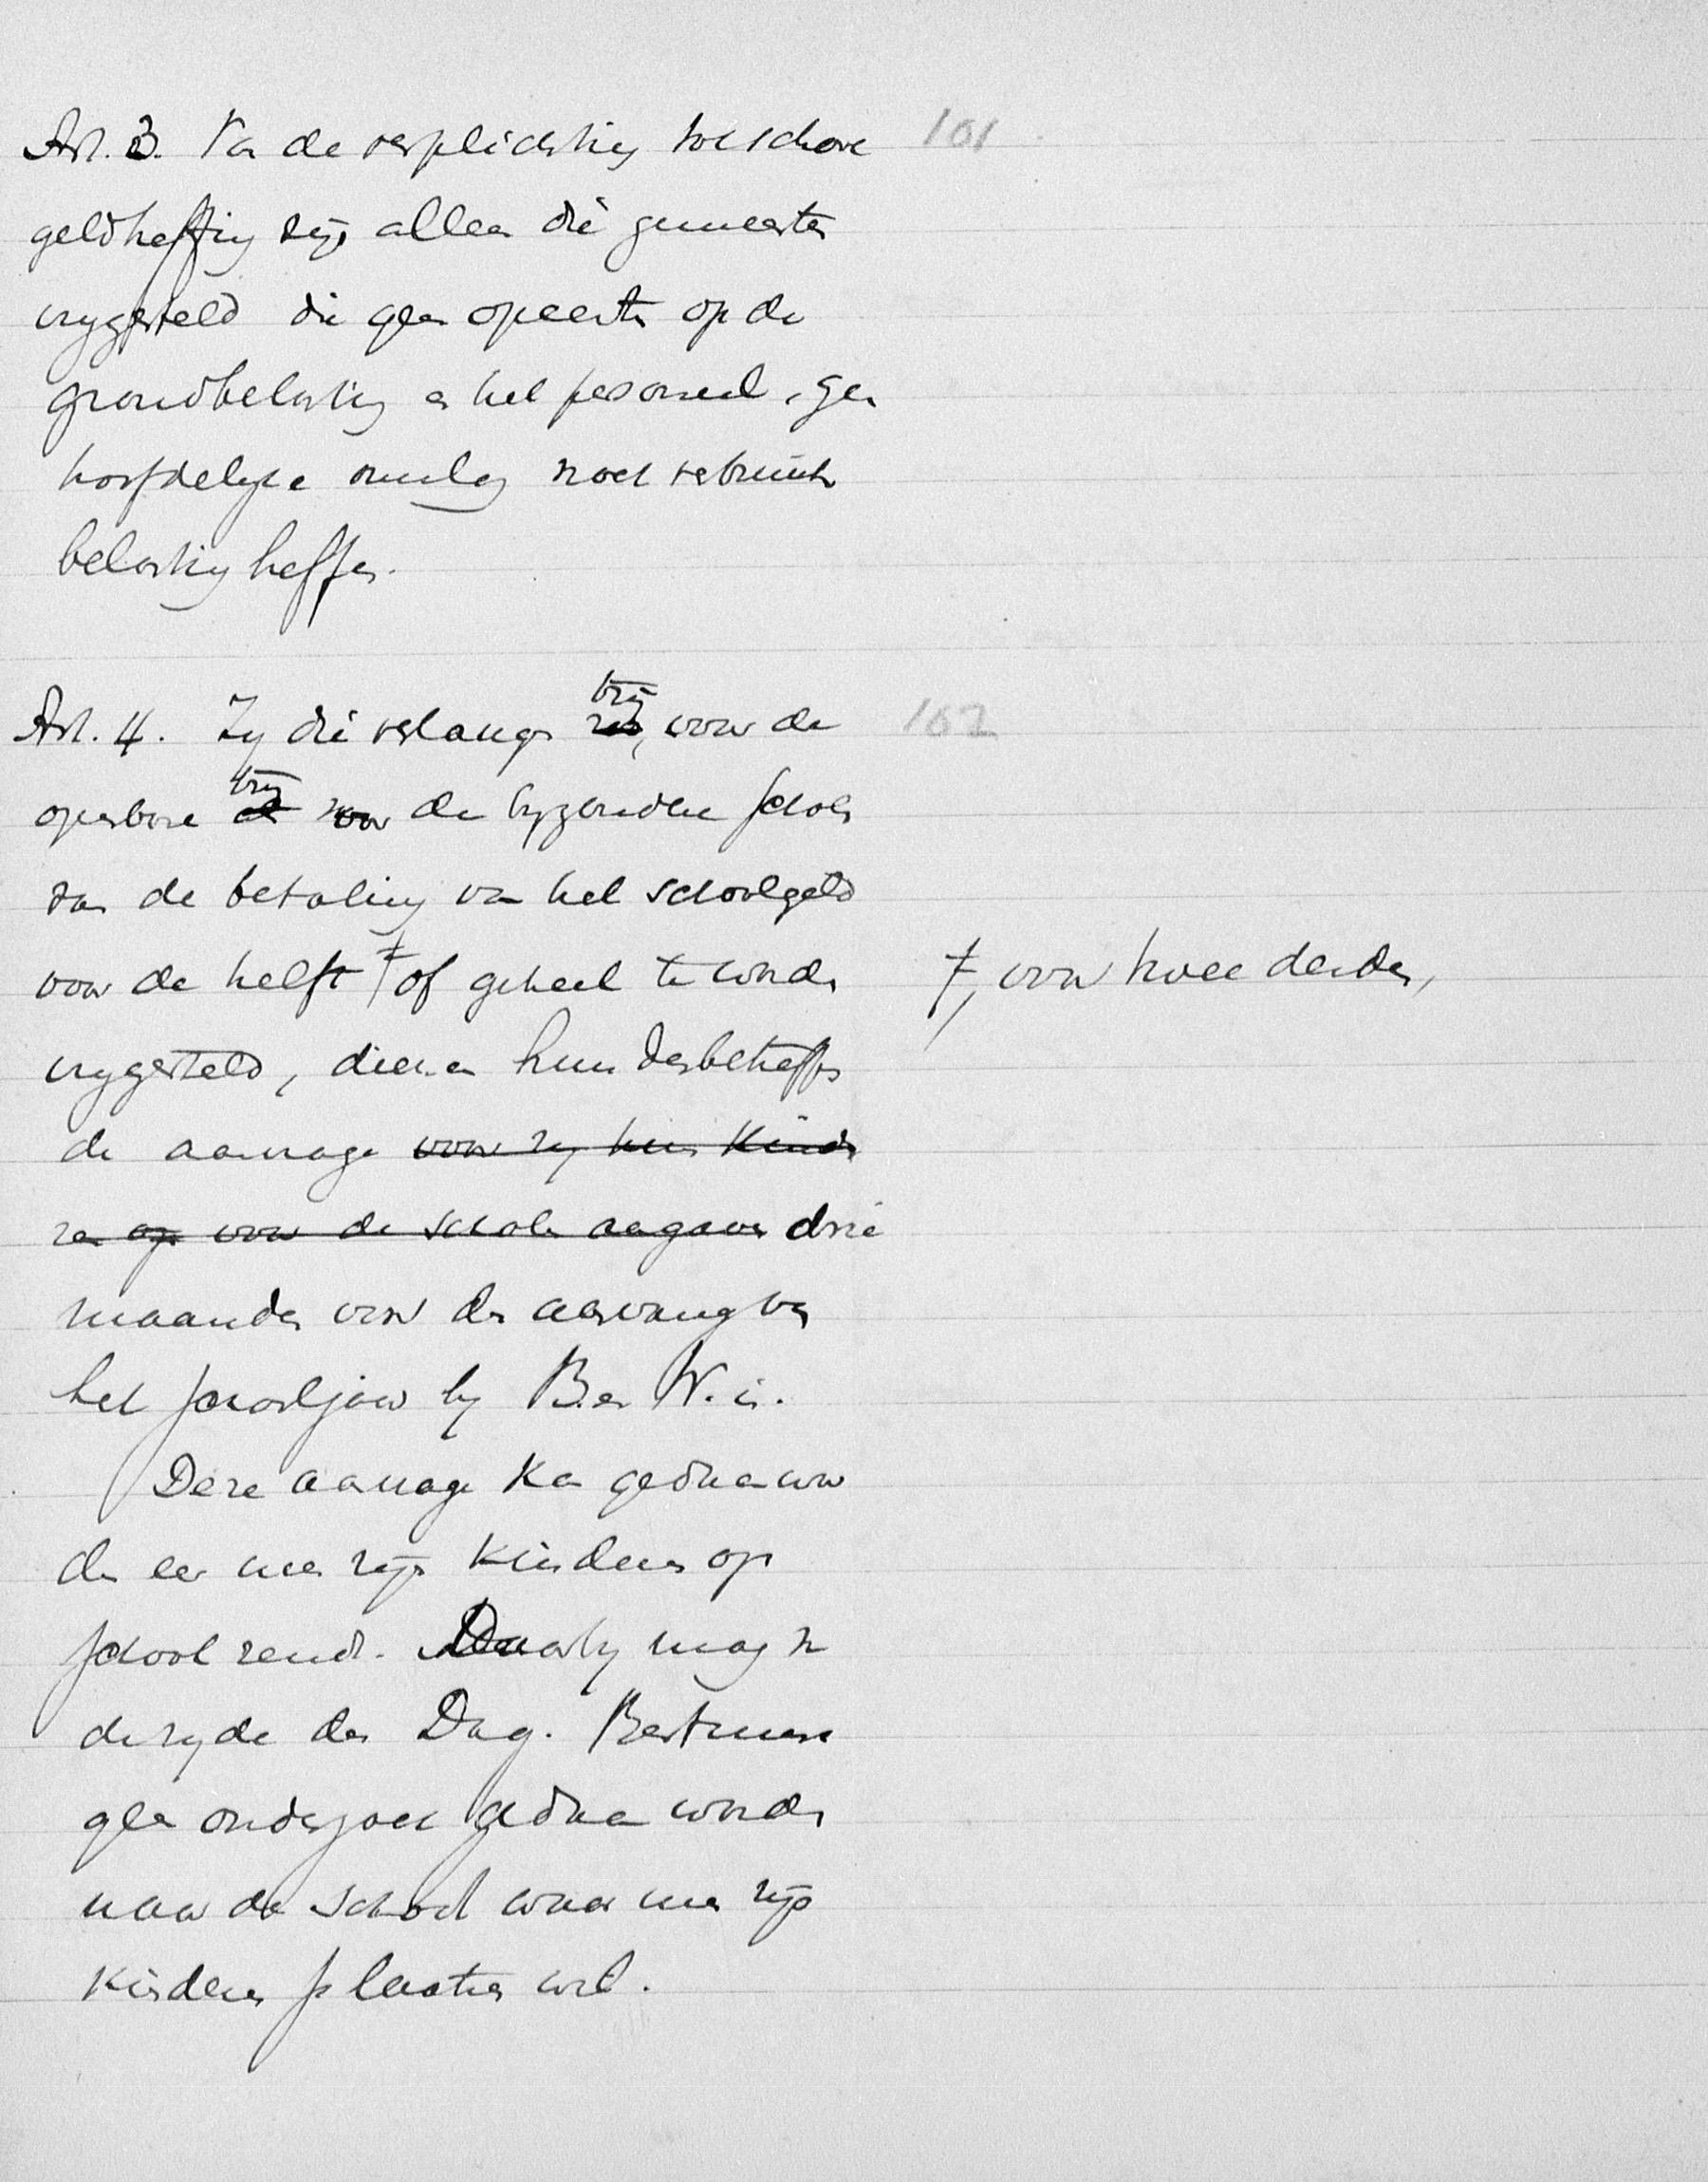 Art. 3. Van de verplichting tot school 101
geldheffing zijn alleen die gemeenten
vrygesteld die geen opcenten op de
grondbelasting en het personeel, geen
hoofdelyke omslag noch vertering
belasting heffen.
Art. 4. Zy die verlangen, 't zij voor de 102
openbare 't zij voor de byzondere scholen
van de betaling van het schoolgeld
voor de helft ≠ of geheel te worden ≠, voor twee derden,
vrygesteld, dienen hun desbetreffen
de aanvrage voor zy hun kinde
ren op voor de scholen aangaven drie
maanden voor den aanvang van
het schooljaar by B. en W. in.
Deze aanvrage kan gedaan wor
den eer men zijn kinderen op
school zendt. Daarby mag van
de zyde des Dag. Bestuurs
geen onderzoek gedaan worden
naar de school waar men zijn
kinderen plaatsen wil.